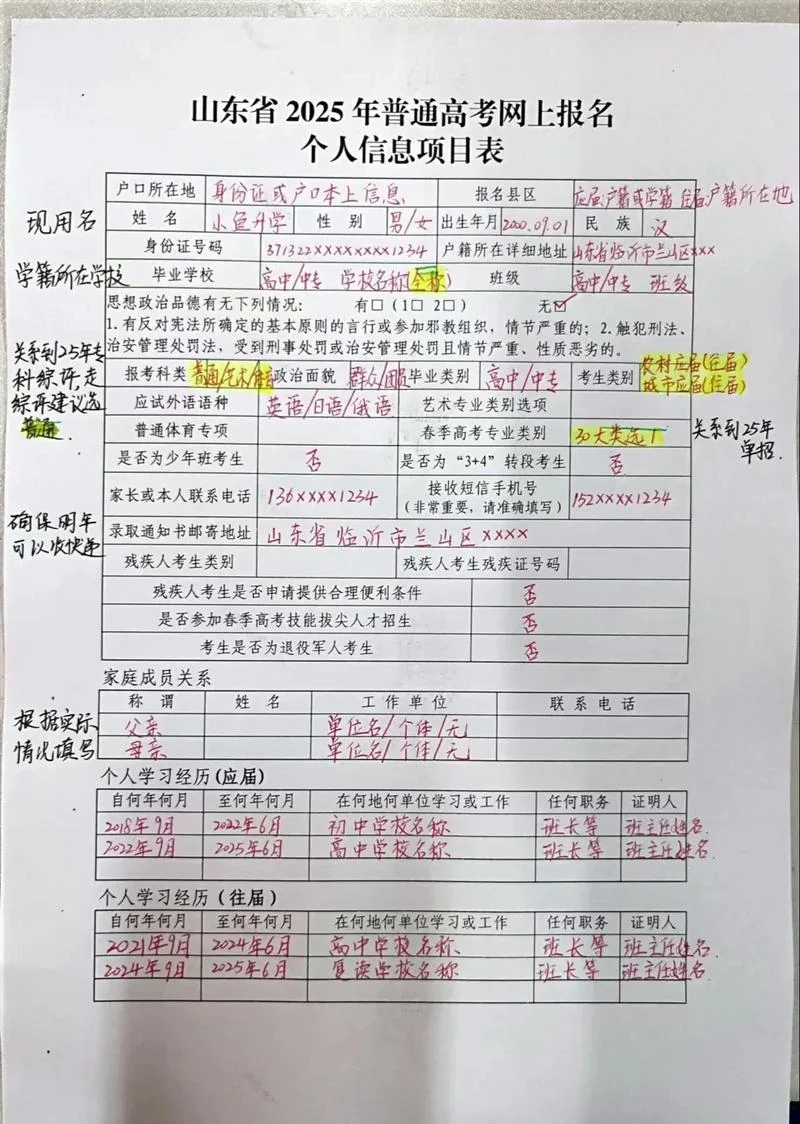 山东省 2025 年普通高考网上报名
个人信息项目表
户口所在地 身份证或户口本上信息 报名县区 应届:户籍或学籍 往届:户籍所在地
现用名
姓 名 小鱼升学 性 别 男/女 出生年月 2000.09.01 民 族 汉
身份证号码 371322××××××××1234 户籍所在详细地址 山东省临沂市兰山区×××
学籍所在学校
毕业学校 高中/中专 学校名称(全称) 班级 高中/中专 班级
思想政治品德有无下列情况: 有□(1□ 2□) 无☑
1. 有反对宪法所确定的基本原则的言行或参加邪教组织,情节严重的;2. 触犯刑法、
治安管理处罚法,受到刑事处罚或治安管理处罚且情节严重、性质恶劣的。
关系到25年专
科综评,走
综评建议选
普通.
报考科类 普通/艺术/体育 政治面貌 群众/团员 毕业类别 高中/中专 考生类别 农村应届(往届)
城市应届(往届)
应试外语语种 英语/日语/俄语 艺术专业类别选项
普通体育专项 春季高考专业类别 30大类选1
关系到25年
单招.
是否为少年班考生 否 是否为“3+4”转段考生 否
家长或本人联系电话 136××××1234 接收短信手机号
(非常重要,请准确填写) 152××××1234
确保明年
可以收快递
录取通知书邮寄地址 山东省临沂市兰山区××××
残疾人考生类别 残疾人考生残疾证号码
残疾人考生是否申请提供合理便利条件 否
是否参加春季高考技能拔尖人才招生 否
考生是否为退役军人考生 否
家庭成员关系
称 谓 姓 名 工 作 单 位 联 系 电 话
根据实际
情况填写
父亲 单位名/个体/无
母亲 单位名/个体/无
个人学习经历(应届)
自何年何月 至何年何月 在何地何单位学习或工作 任何职务 证明人
2018年9月 2022年6月 初中学校名称 班长等 班主任姓名.
2022年9月 2025年6月 高中学校名称 班长等 班主任姓名.
个人学习经历(往届)
自何年何月 至何年何月 在何地何单位学习或工作 任何职务 证明人
2021年9月 2024年6月 高中学校名称. 班长等 班主任姓名.
2024年9月 2025年6月 复读学校名称 班长等 班主任姓名.